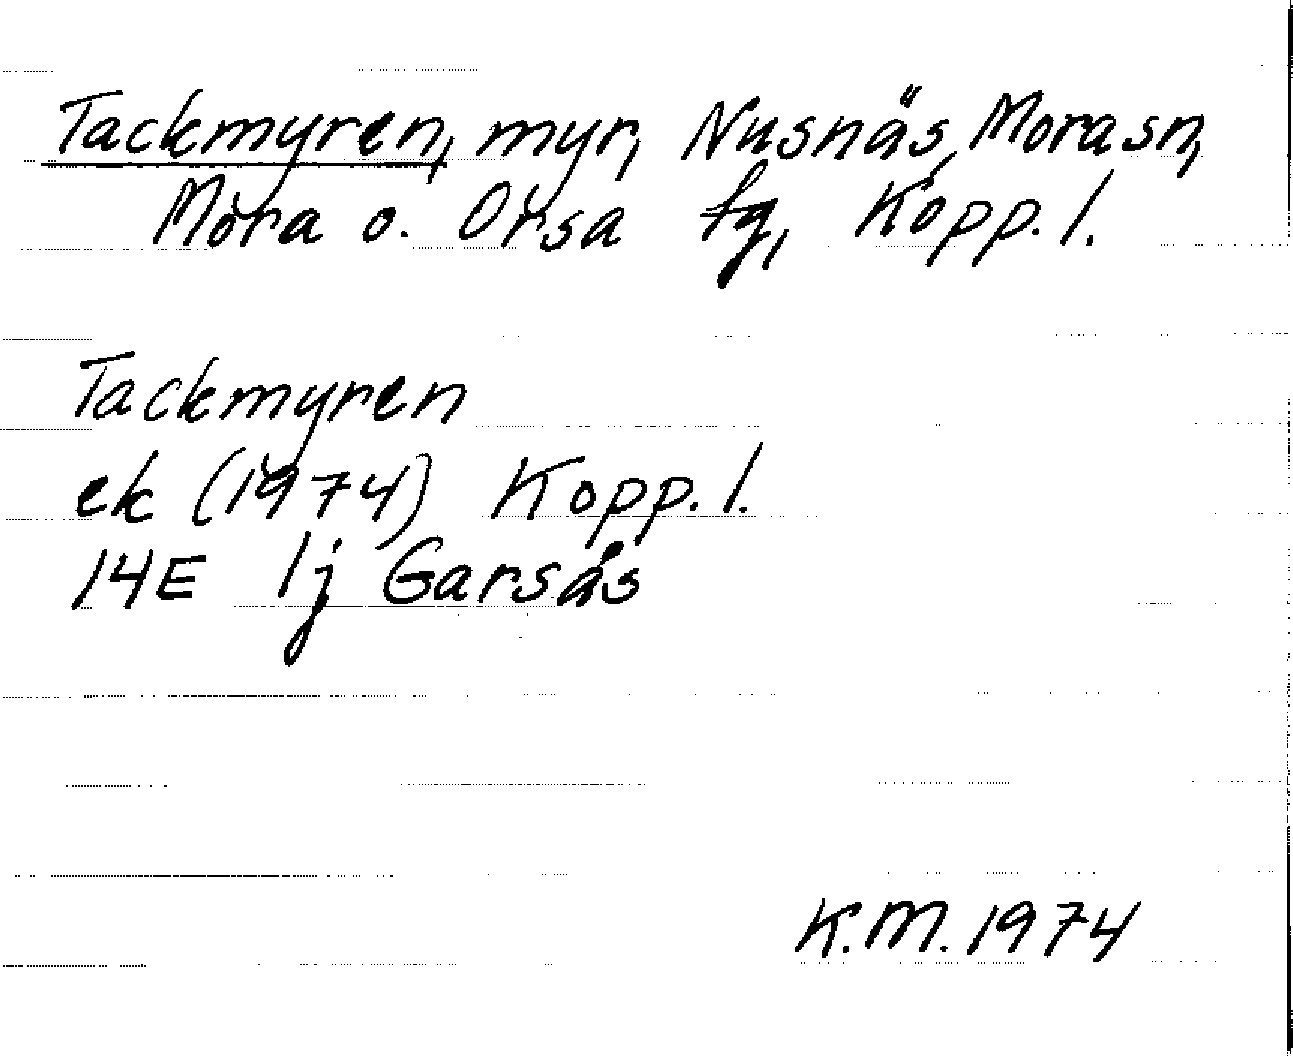 Tackmyren, myr, Nusnäs, Mora sn,
Mora o. Orsa tg, Kopp. l.
Tackmyren
ek (1974) Kopp. l.
14E 1j Garsås
K.M. 1974